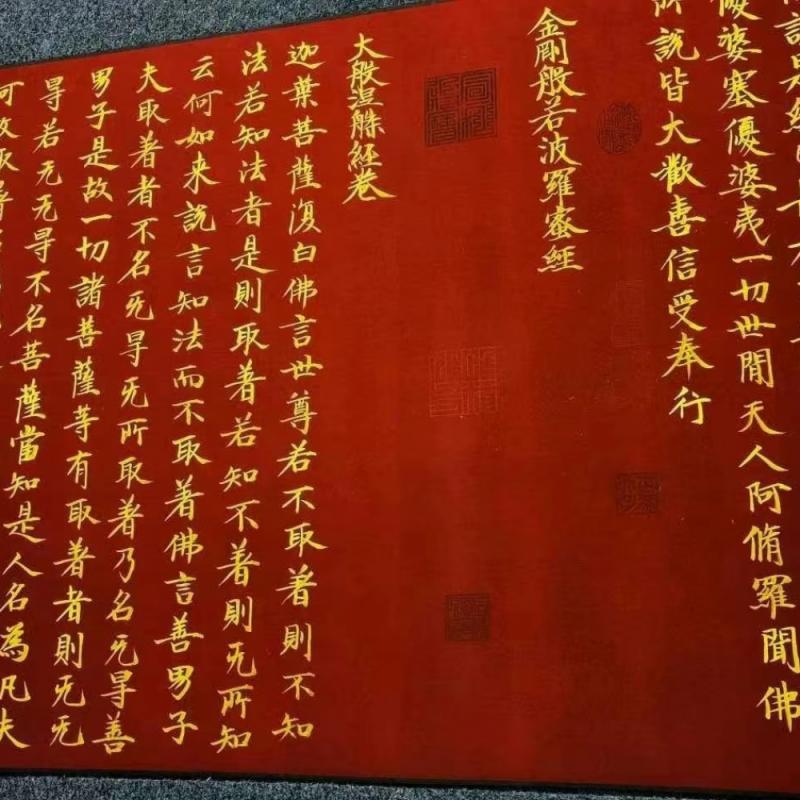 優婆塞優婆夷一切世間天人阿脩羅聞佛
所說皆大歡喜信受奉行
金剛般若波羅蜜經
大般涅槃經卷
迦葉菩薩復白佛言世尊若不取著則不知
法若知法者是則取著若知不著則无所知
云何如来說言知法而不取著佛言善男子
夫取著者不名无㝵无所取著乃名无㝵善
男子是故一切諸菩薩等有取著者則无无
㝵若无无㝵不名菩薩當知是人名為凡夫
何故取著